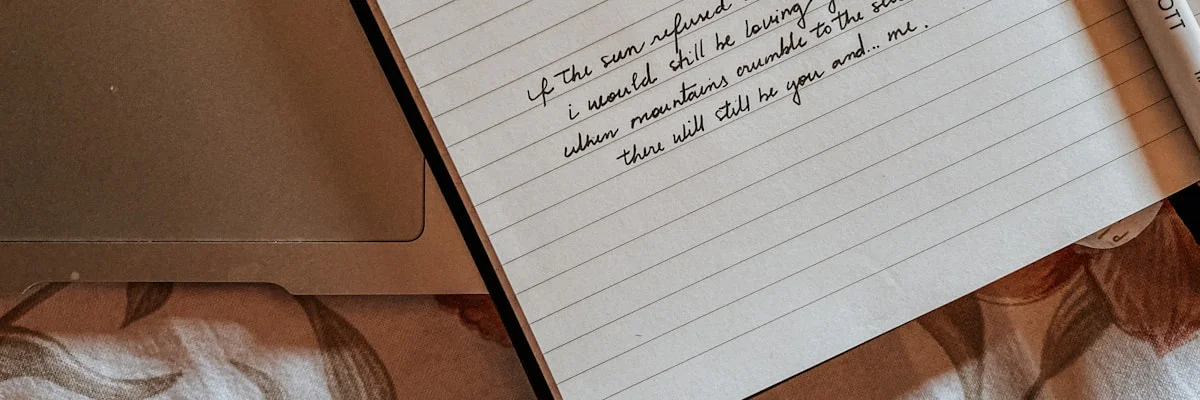 if the sun refused
i would still be loving
when mountains crumble to the
there will still be you and... me.
OTT